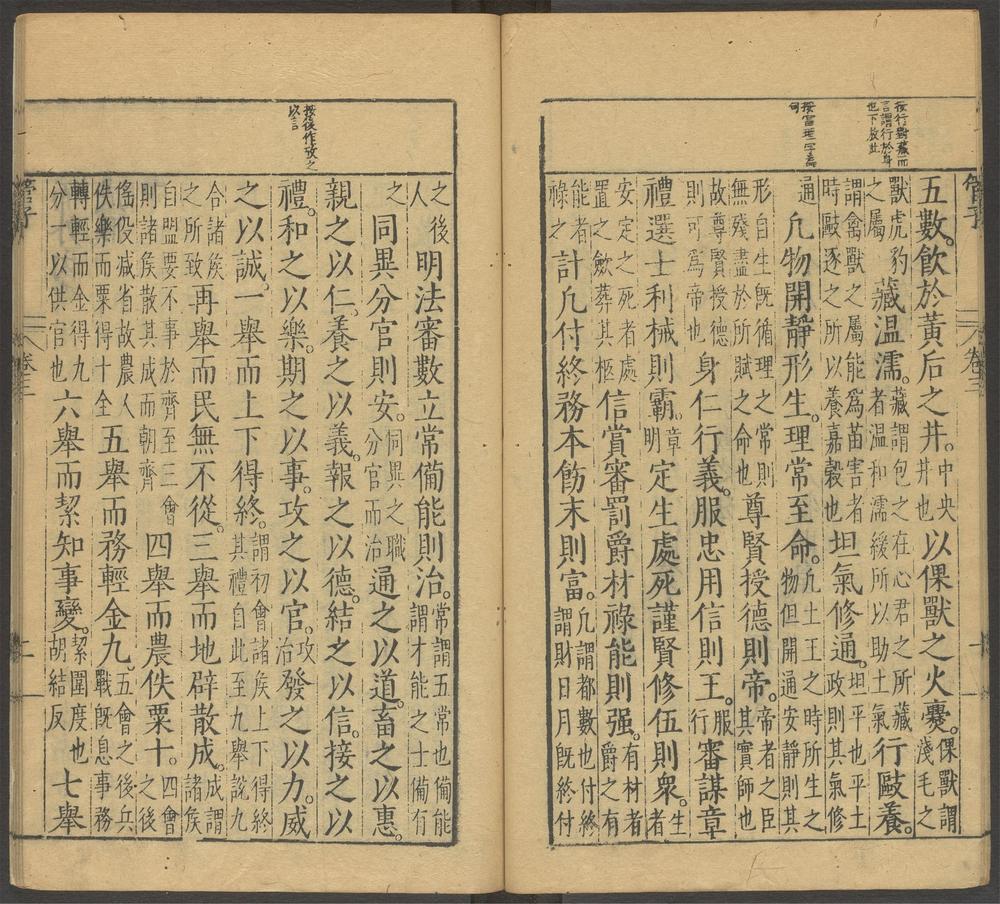 管子
卷三
按行對藏而言謂行於身也下放此
五數。飲於黃后之井。中央井也以倮獸之火爨。倮獸謂淺毛之
獸虎豹之屬藏温濡。藏謂包之在心君之所藏者温和濡緩所以助土氣行敺養。
謂禽獸之屬能爲苗害者時敺逐之所以養嘉穀也坦氣修通。坦平也平土政則其氣修
通凡物開靜形生。理常至命。凡土王之時所生之物但開通安靜則其
形自生旣循理之常則無殘盡於所賦之命也尊賢授德則帝。帝者之臣其實師也
故尊賢授德則可爲帝也身仁行義。服忠用信則王。服行審謀章
禮選士利械則霸。章明定生處死謹賢修伍則衆。生者
安定之死者處置之斂葬其柩信賞審罰爵材祿能則强。有材者爵之有
能者祿之計凡付終務本飭末則富。凡謂都數也付終謂財日月旣終付
按後作攻之以言
之後人明法審數立常備能則治。常謂五常也備能謂才能之士備有
之同異分官則安。同異之職分官而治通之以道。畜之以惠。
親之以仁。養之以義。報之以德。結之以信。接之以
禮。和之以樂。期之以事。攻之以官。攻治發之以力。威
之以誠。一舉而上下得終。謂初會諸侯上下得終其禮自此至九舉說九
合諸侯之所致再舉而民無不從。三舉而地辟散成。成謂諸侯
自盟要不事於齊至三會則諸侯散其成而朝齊四舉而農佚粟十。四會之後
徭役减省故農人佚樂而粟得十全五舉而務輕金九。五會之後兵戰旣息事務
轉輕而金得九分一以供官也六舉而絜知事變。絜圍度也胡結反七舉
管子
卷三